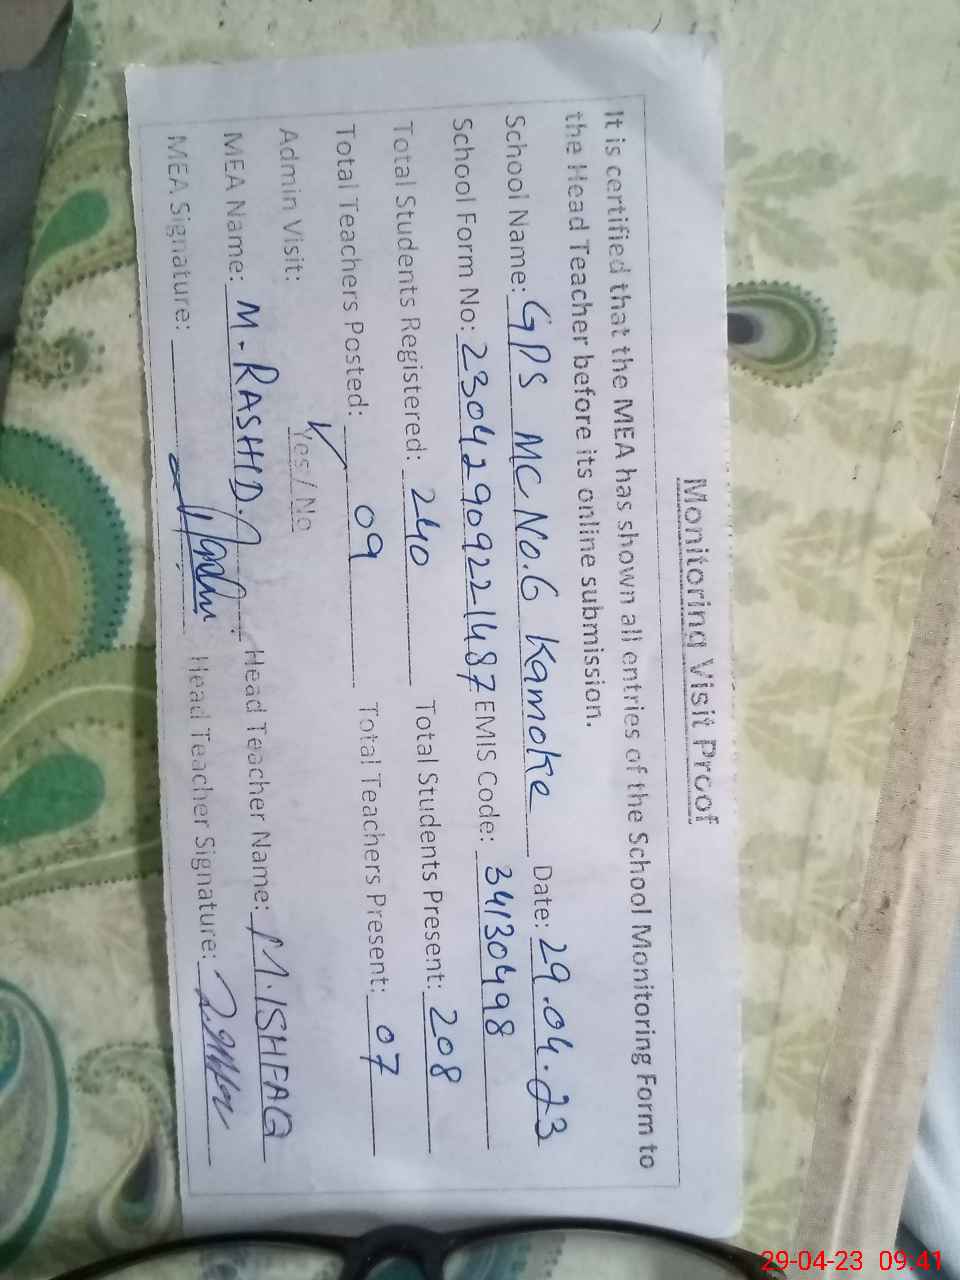 Monitoring Visit Proof
It is certified that the MEA has shown all entries of the School Monitoring Form to
the Head Teacher before its online submission.
School Name: GPS MC No.6 Kamoke Date: 29.04.23
School Form No: 23042909221487 EMIS Code: 34130498
Total Students Registered: 240 Total Students Present: 208
Total Teachers Posted: 09 Total Teachers Present: 07
Admin Visit: Yes / No
MEA Name: M. RASHID. Head Teacher Name: M. ISHFAQ
MEA Signature: Head Teacher Signature:
29-04-23 09:41